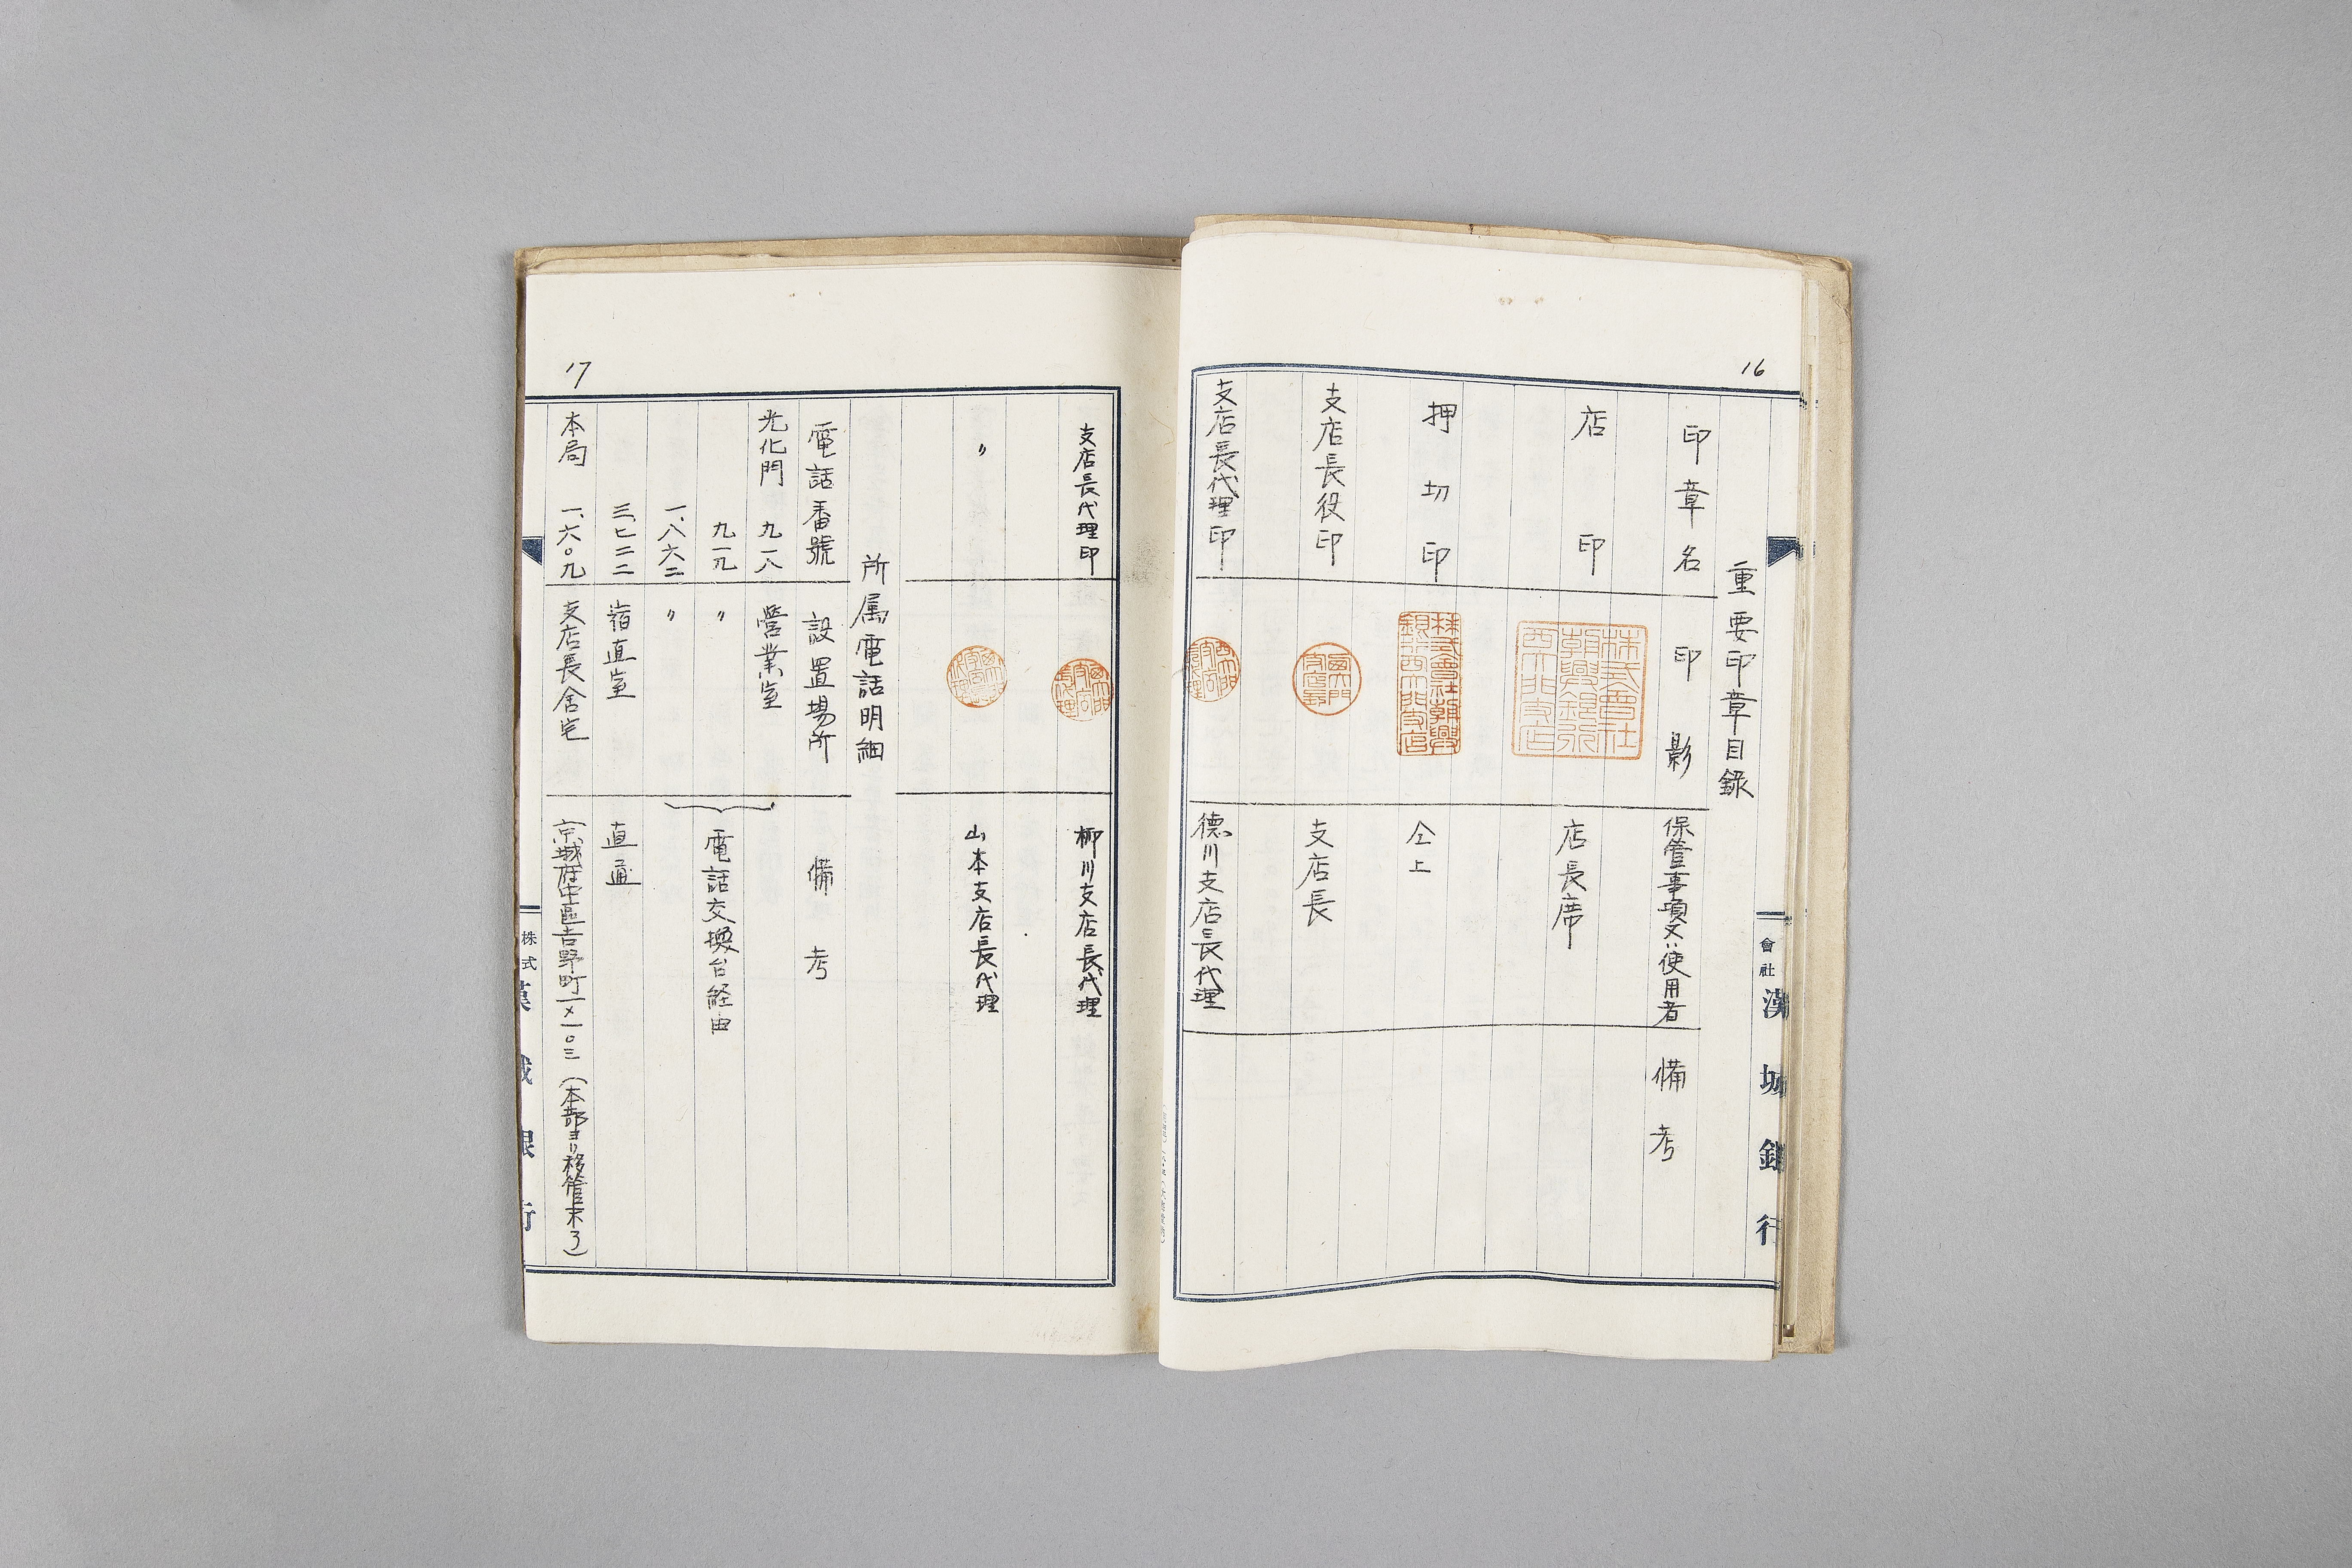 16
重要印章目録
印章名 印影 保管事項又ハ使用者 備考
店印 株式會社朝興銀行西大門支店 店長席
押切印 株式會社朝興銀行西大門支店 仝上
支店長役印 支店長
支店長代理印 德川支店長代理
會社 漢城銀行
17
支店長代理印 柳川支店長代理
〃 山本支店長代理
所属電話明細
電話番號 設置場所 備考
光化門 九一八 営業室
九一九 〃 電話交換台経由
一、八六二 〃
三、七二二 宿直室 直通
本局 一、六〇九 支店長舎宅 京城府中區吉野町一ノ一〇三(本部ヨリ移管未了)
株式 漢城銀行